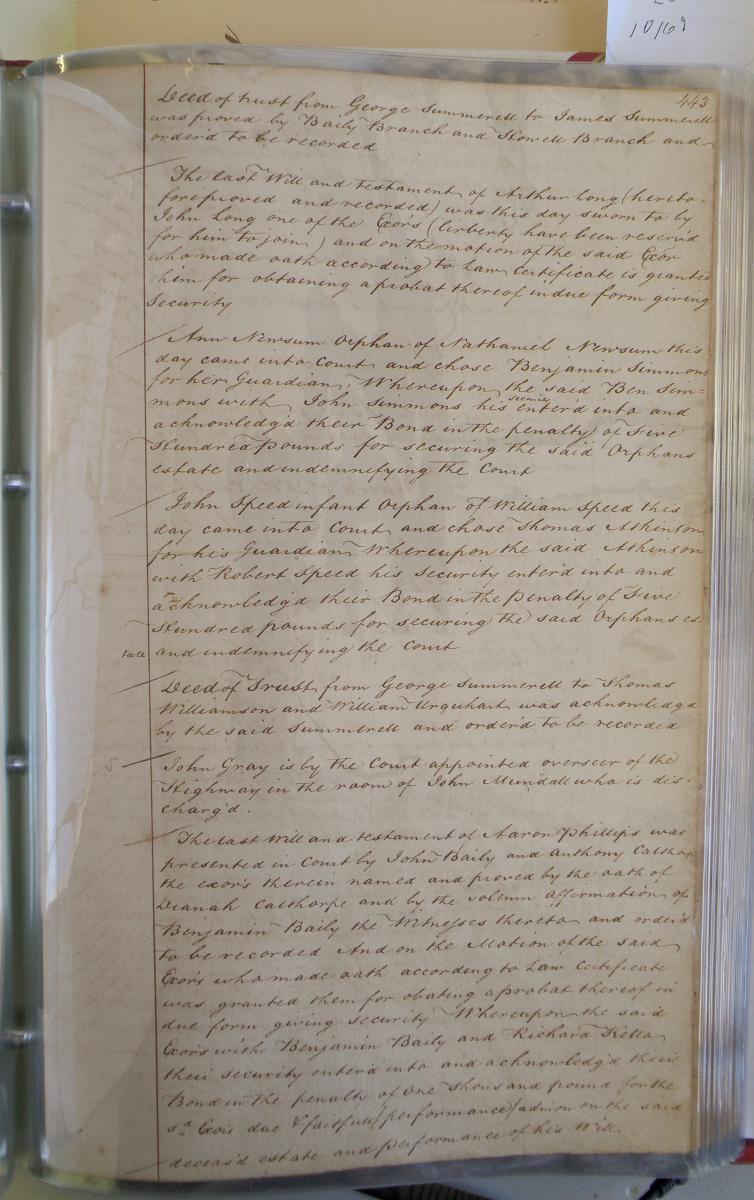 10/69
443
Deed of trust from George Summerell to James Summerell
was proved by Baily Branch and Howell Branch and
order'd to be recorded
The last Will and testament of Arthur Long (hereto-
fore proved and recorded) was this day sworn to by
John Long one of the Exors (liberty have been reserv'd
for him to join) and on the motion of the said Exor
who made oath according to Law Certificate is granted
him for obtaining a probat thereof in due form giving
Security
Ann Newsum Orphan of Nathaniel Newsum this
day came into Court and chose Benjamin Simmons
for her Guardian, Whereupon the said Ben Sim=
mons with John Simmons his security enter'd into and
acknowledg'd their Bond in the penalty of Five
Hundred pounds for securing the said Orphans
estate and indemnifying the Court
John Speed infant Orphan of William Speed this
day came into Court and chose Thomas Atkinson
for his Guardian Whereupon the said Atkinson
with Robert Speed his Security enter'd into and
acknowledg'd their Bond in the Penalty of Five
Hundred pounds for securing the said Orphans es
tate and indemnifying the Court
Deed of Trust from George Summerell to Thomas
Williamson and William Urquhart was acknowledg'd
by the said Summerell and order'd to be recorded
John Gray is by the Court appointed overseer of the
Highway in the room of John Mundall who is dis-
charg'd.
The last Will and testament of Aaron Phillips was
presented in Court by John Baily and Anthony Calthorp
the exors therein named and proved by the oath of
Dianah Calthorpe and by the solemn affirmation of
Benjamin Baily the Witnesses thereto and order'd
to be recorded And on the Motion of the said
Exors who made oath according to Law Certificate
was granted them for obating a probat thereof in
due form giving security Whereupon the said
Exors with Benjamin Baily and Richard Kello
their security enter'd into and acknowledg'd their
Bond in the penalty of One Thousand pound for the
sd Exors due & faithfull performance admon on the said
deceas'd estate and performance of his Will